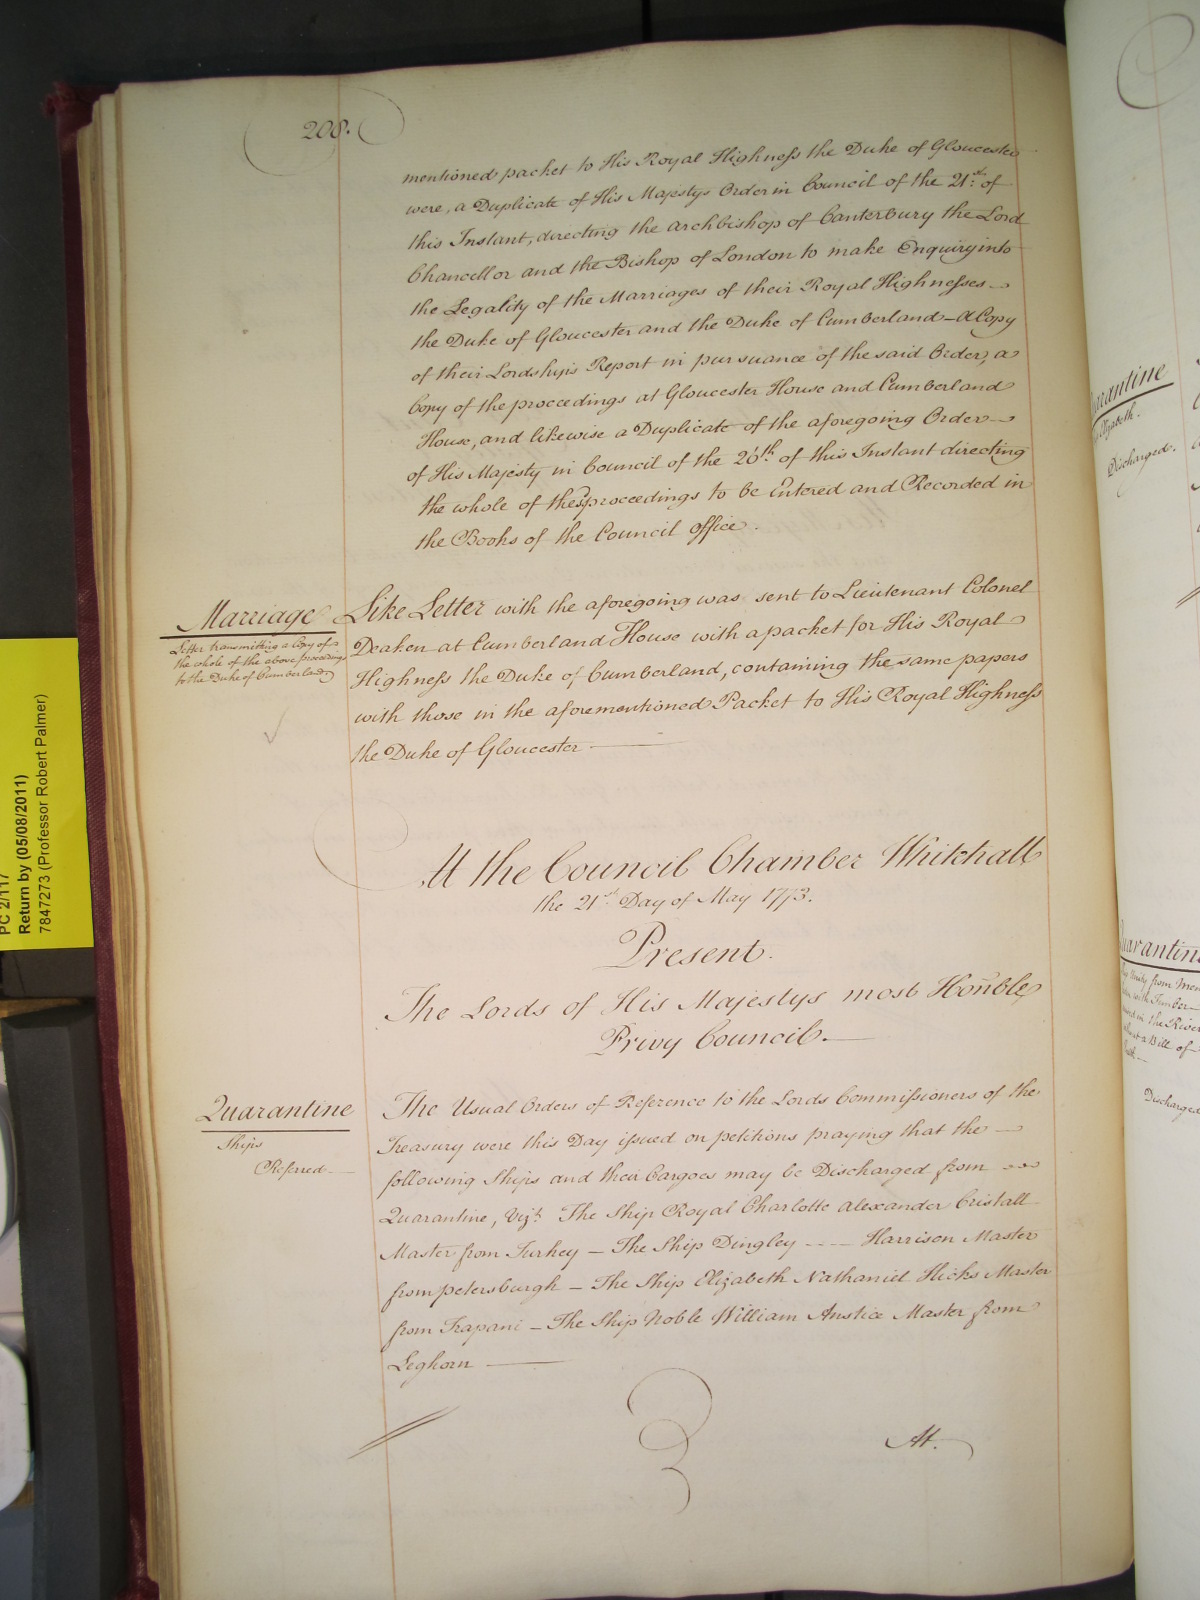 208.
mentioned packet to His Royal Highness the Duke of Gloucester
were, a Duplicate of His Majestys Order in Council of the 21st of
this Instant, directing the Archbishop of Canterbury the Lord
Chancellor and the Bishop of London to make Enquiry into
the Legality of the Marriages of their Royal Highnesses
the Duke of Gloucester and the Duke of Cumberland – A Copy
of their Lordships Report in pursuance of the said Order, a
Copy of the proceedings at Gloucester House and Cumberland
House, and likewise a Duplicate of the aforegoing Order
of His Majesty in Council of the 26th of this Instant directing
the whole of these proceedings to be Entered and Recorded in
the Books of the Council office.
Marriage
Letter transmitting a Copy of
the whole of the above proceedings
to the Duke of Cumberland
Like Letter with the aforegoing was sent to Lieutenant Colonel
Deaken at Cumberland House with a packet for His Royal
Highness the Duke of Cumberland, containing the same papers
with those in the aforementioned Packet to His Royal Highness
the Duke of Gloucester
At the Council Chamber Whitehall
the 21st Day of May 1773.
Present.
The Lords of His Majestys most Honble
Privy Council.
Quarantine
Ships
Referred
The Usual Orders of Reference to the Lords Commissioners of the
Treasury were this Day issued on petitions praying that the
following Ships and their Cargoes may be Discharged from
Quarantine, Vizt. The Ship Royal Charlotte Alexander Cristall
Master from Turkey – The Ship Dingley ---- Harrison Master
from petersburgh – The Ship Elizabeth Nathaniel Hicks Master
from Trapani – The Ship Noble William Anstice Master from
Leghorn
At.
PC 2/117
Return by (05/08/2011)
7847273 (Professor Robert Palmer)
Discharged.
Discharged